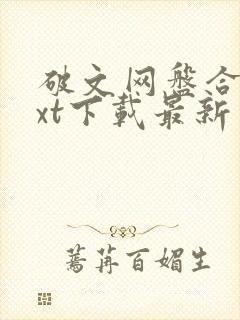 破文网盘合
xt下载最新
蔫苒百媚生